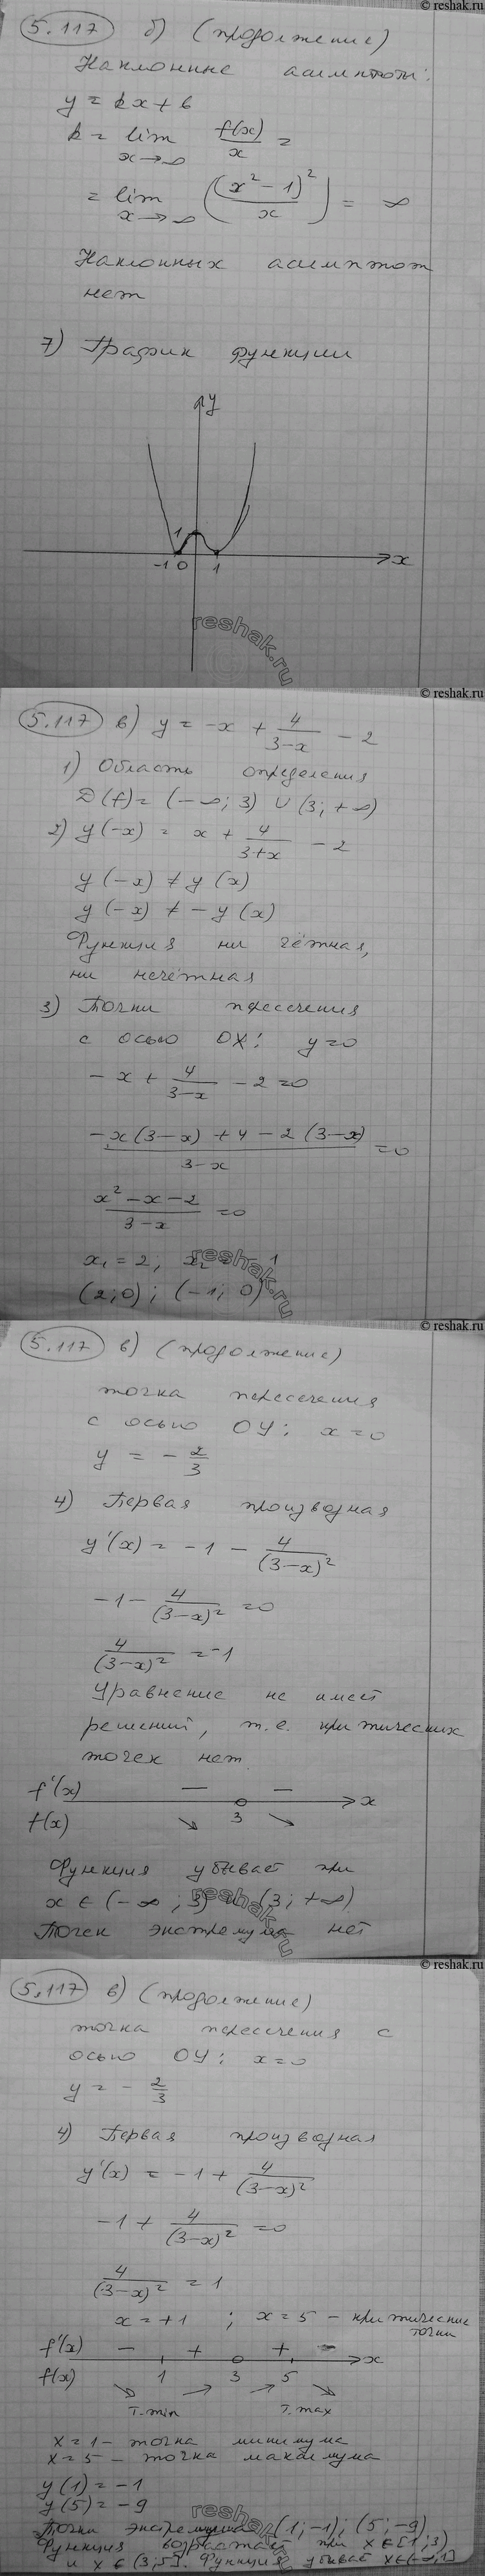 © reshak.ru
5.117 б) (продолжение)
Наклонные асимптоты:
y = kx + b
k = lim x→∞ f(x)/x =
= lim x→∞ ((x² − 1)²/x) = ∞
Наклонных асимптот
нет
7) График функции
y
1
-1 0 1 x
reshak.ru
© reshak.ru
5.117 в) y = -x + 4/(3-x) - 2
1) Область определения
D(f) = (-∞; 3) ∪ (3; +∞)
2) y(-x) = x + 4/(3+x) - 2
y(-x) ≠ y(x)
y(-x) ≠ -y(x)
Функция ни чётная,
ни нечётная
3) Точки пересечения
с осью OX: y=0
-x + 4/(3-x) - 2 = 0
(-x(3-x) + 4 - 2(3-x))/(3-x) = 0
(x² - x - 2)/(3-x) = 0
x₁ = 2; x₂ = -1
(2; 0); (-1; 0)
reshak.ru
© reshak.ru
5.117 в) (продолжение)
точка пересечения
с осью OY: x=0
y = -2/3
4) Первая производная
y'(x) = -1 - 4/(3-x)²
-1 - 4/(3-x)² = 0
4/(3-x)² = -1
Уравнение не имеет
решений, т.е. критических
точек нет.
f'(x) — — x
f(x) ↘ 3 ↘
Функция убывает при
x ∈ (-∞; 3) и (3; +∞)
Точек экстремума нет
reshak.ru
© reshak.ru
5.117 в) (продолжение)
точка пересечения с
осью OY: x=0
y = -2/3
4) Первая производная
y'(x) = -1 + 4/(3-x)²
-1 + 4/(3-x)² = 0
4/(3-x)² = 1
x = +1 ; x = 5 - критические
точки
f'(x) − + + − x
f(x) ↘ 1 ↗ 3 ↗ 5 ↘
т.min т.max
x = 1 - точка минимума
x = 5 - точка максимума
y(1) = -1
y(5) = -9
Точки экстремума (1; -1); (5; -9)
Функция возрастает при x ∈ [1; 3)
и x ∈ (3; 5]. Функция убывает x ∈ (-∞; 1]
reshak.ru